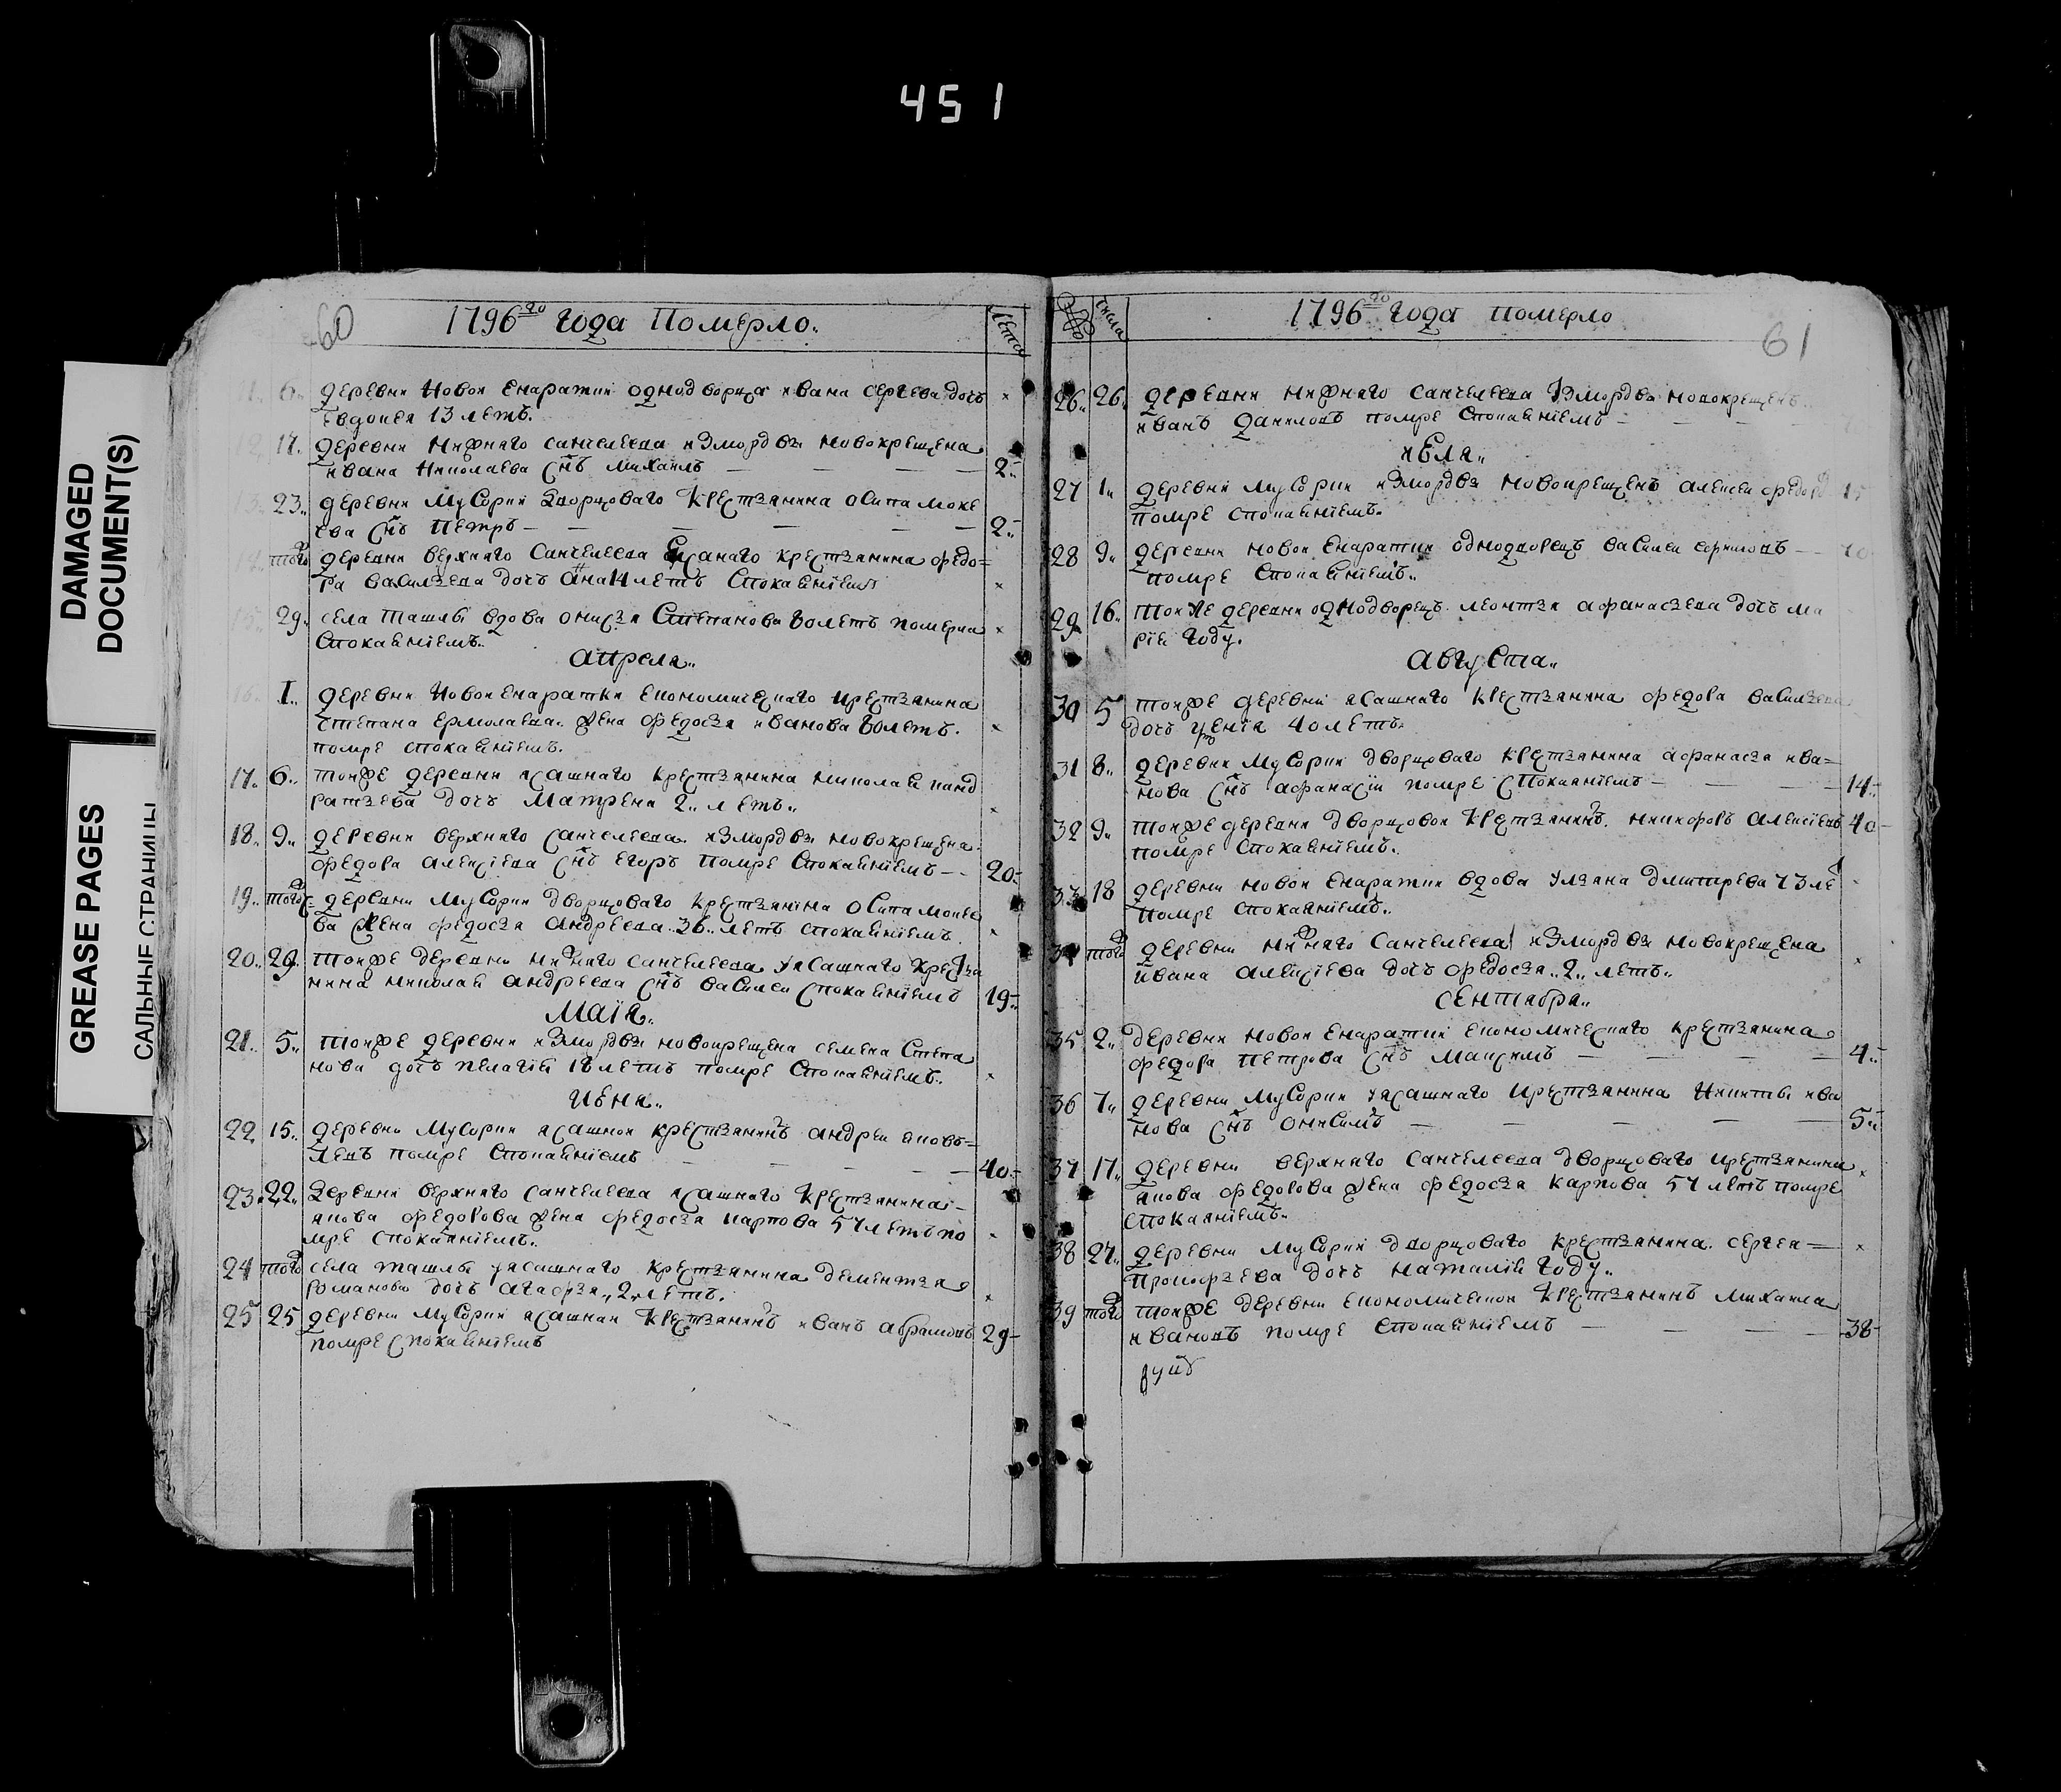 451
DAMAGED
DOCUMENT(S)
GREASE PAGES
САЛЬНЫЕ СТРАНИЦЫ
60
1796го года Померло.
лета
11. 6. деревни Новой Енаратки однодворца ивана сергеева дочь
Евдокея 13 летъ.
12. 17. деревни Нижняго санчелеева измордвы новокрещена
ивана Николаева снъ михаилъ 2.
13. 23. деревни Мусорки дворцоваго крестьянина осипа моке
ева снъ Петръ 2.
14. того деревни верхняго Санчелеева ясашнаго крестьянина федо=
ра васильева дочь Анна 14 летъ Спокаяниемъ
15. 29. села ташлы вдова Степанова 80 летъ померла
Спокаяниемъ.
апреля.
16. 1. деревни Новой Енаратки економическаго крестьянина
степана ермолаева жена федосья иванова 80 летъ.
помре спокаяниемъ.
17. 6. тойже деревни ясашнаго крестьянина николая канд
ратьева дочь Матрена 2 летъ.
18. 9. деревни верхняго санчелеева измордвы новокрещена
федора алексеева снъ егоръ помре Спокаяниемъ 20.
19. тогож деревни Мусорки дворцоваго крестьянина Осипа мокее
ва жена федосья андреева 36 летъ спокаяниемъ.
20. 29. тойже деревни нижняго санчелеева ясашнаго крестья
нина николая андреева снъ василей спокаяниемъ 19.
Маїя.
21. 5. тойже деревни измордвы новокрещена семена Степа
нова дочь пелагїя 18 летъ помре Спокаяниемъ.
Июня.
22. 15. деревни Мусорки ясашной крестьянинъ андрей яковъ=
левъ помре Спокаяниемъ 40.
23. 22. деревни верхняго санчелеева ясашнаго крестьянина
якова федорова жена федосья карпова 57 летъ по
мре спокаяниемъ.
24 того села ташлы ясашнаго крестьянина дементья
романова дочь агафья 2 летъ.
25 25 деревни мусорки ясашной крестьянинъ иванъ абрамовъ 29
помре спокаяниемъ
числа
1796го года померло
61
26. 26. деревни нижняго санчелеева измордвы новокрещенъ
иванъ даниловъ помре Спокаяниемъ
июля.
27 1. деревни мусорки измордвы новокрещенъ алексей федоро
помре спокаяниемъ.
28 9. деревни новой Енаратки однодворецъ василей
помре Спокаяниемъ.
29 16. тойже деревни однодворецъ леонтья афанасьева дочь ма
рїя году.
Августа.
30 5 тойже деревни ясашнаго крестьянина федора васильева
дочь 40 летъ.
31 8. деревни мусорки дворцоваго крестьянина афанасья ива=
нова снъ афанасїй помре Спокаяниемъ 14.
32 9. тойже деревни дворцовой крестьянинъ никифоръ алексеевъ 40
помре Спокаяниемъ.
33 18 деревни новой енаратки вдова ульяна дмитрева 73 ле
помре спокаяниемъ.
34 того деревни нижняго санчелеева измордвы новокрещена
ивана алексеева дочь федосья 2 летъ.
сентября.
35 2. деревни новой енаратки економическаго крестьянина
федора петрова снъ максимъ 4.
36 7. деревни мусорки ясашнаго крестьянина Никиты ива
нова снъ онисимъ 5.
37 17. деревни верхняго санчелеева дворцоваго крестьянина
якова федорова жена федосья карпова 57 летъ помре
спокаяниемъ.
38 27. деревни мусорки дворцоваго крестьянина сергея
Прокофьева дочь наталїя году.
39 того тойже деревни економической крестьянинъ михаила
ивановъ помре Спокаяниемъ 38